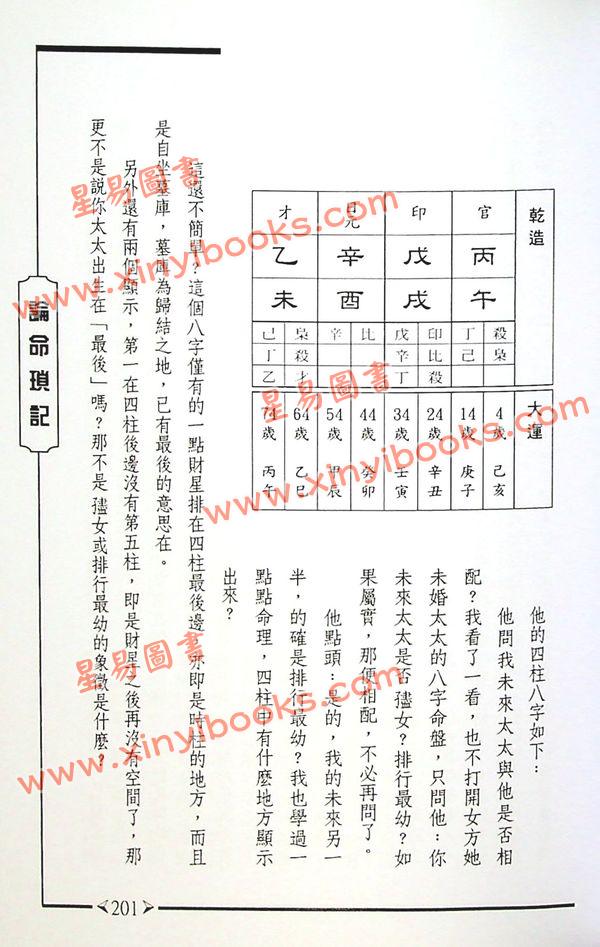 他的四柱八字如下：
他問我未來太太與他是否相
配？我看了一看，也不打開女方她
未婚太太的八字命盤，只問他：你
未來太太是否孻女？排行最幼？如
果屬實，那便相配，不必再問了。
他點頭：是的，我的未來另一
半，的確是排行最幼？我也學過一
點點命理，四柱中有什麼地方顯示
出來？
乾造
官 印 日元 才
丙 戊 辛 乙
午 戌 酉 未
丁 殺 戊 印 辛 比 己 梟
己 梟 辛 比 丁 殺
丁 殺 乙 才
大運
4歲 己亥
14歲 庚子
24歲 辛丑
34歲 壬寅
44歲 癸卯
54歲 甲辰
64歲 乙巳
74歲 丙午
這還不簡單？這個八字僅有的一點財星排在四柱最後邊，亦即是時柱的地方，而且
是自坐墓庫，墓庫為歸結之地，已有最後的意思在。
另外還有兩個顯示，第一在四柱後邊沒有第五柱，即是財星之後再沒有空間了，那
更不是說你太太出生在「最後」嗎？那不是孻女或排行最幼的象徵是什麼？
論命瑣記
201
星易圖書
www.xinyibooks.com
星易圖書
www.xinyibooks.com
星易圖書
www.xinyibooks.com